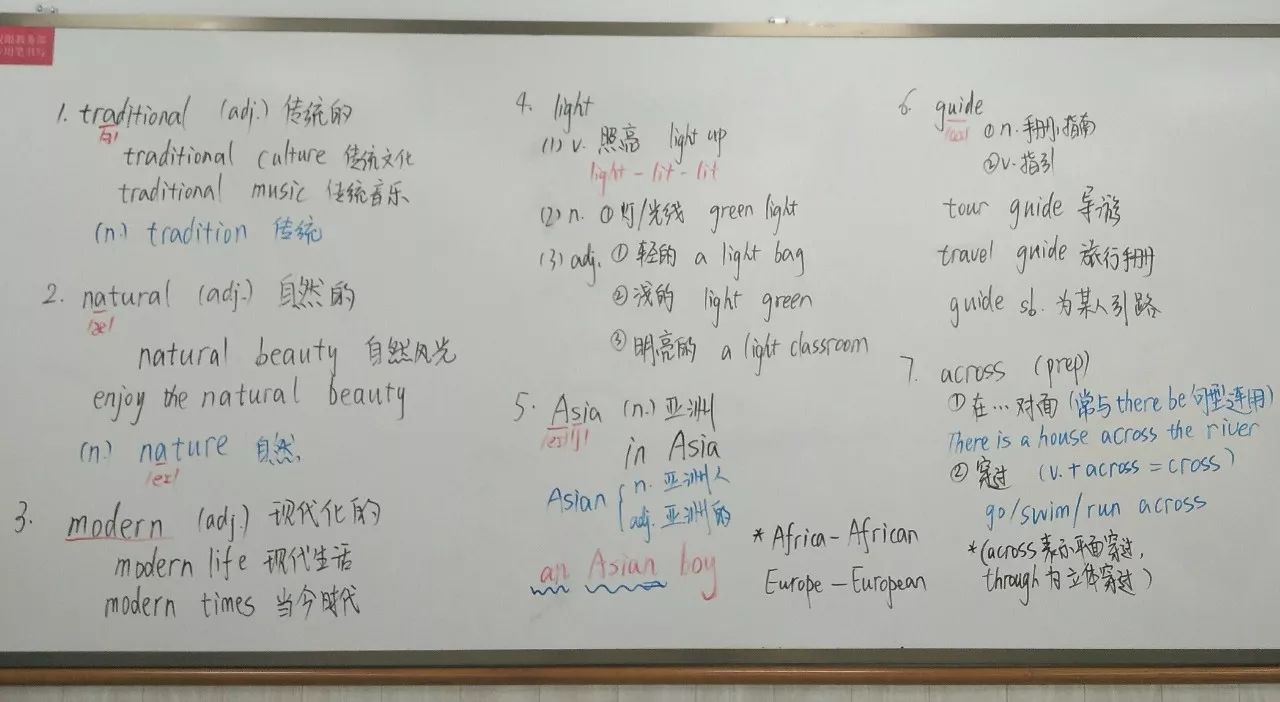 1. traditional (adj.) 传统的
/ə/
traditional culture 传统文化
traditional music 传统音乐
(n.) tradition 传统
2. natural (adj.) 自然的
/æ/
natural beauty 自然风光
enjoy the natural beauty
(n.) nature 自然
/eɪ/
3. modern (adj.) 现代化的
modern life 现代生活
modern times 当今时代
4. light
(1) v. 照亮 light up
light - lit - lit
(2) n. ①灯/光线 green light
(3) adj. ①轻的 a light bag
②浅的 light green
③明亮的 a light classroom
5. Asia (n.) 亚洲
/eɪ/ /ʃ/
in Asia
Asian { n. 亚洲人
adj. 亚洲的
an Asian boy
* Africa - African
Europe - European
6. guide
/aɪ/ ① n. 手册,指南
② v. 指引
tour guide 导游
travel guide 旅行手册
guide sb. 为某人引路
7. across (prep)
①在…对面 (常与there be句型连用)
There is a house across the river
②穿过 (v. + across = cross)
go/swim/run across
*(across表示平面穿过,
through为立体穿过)